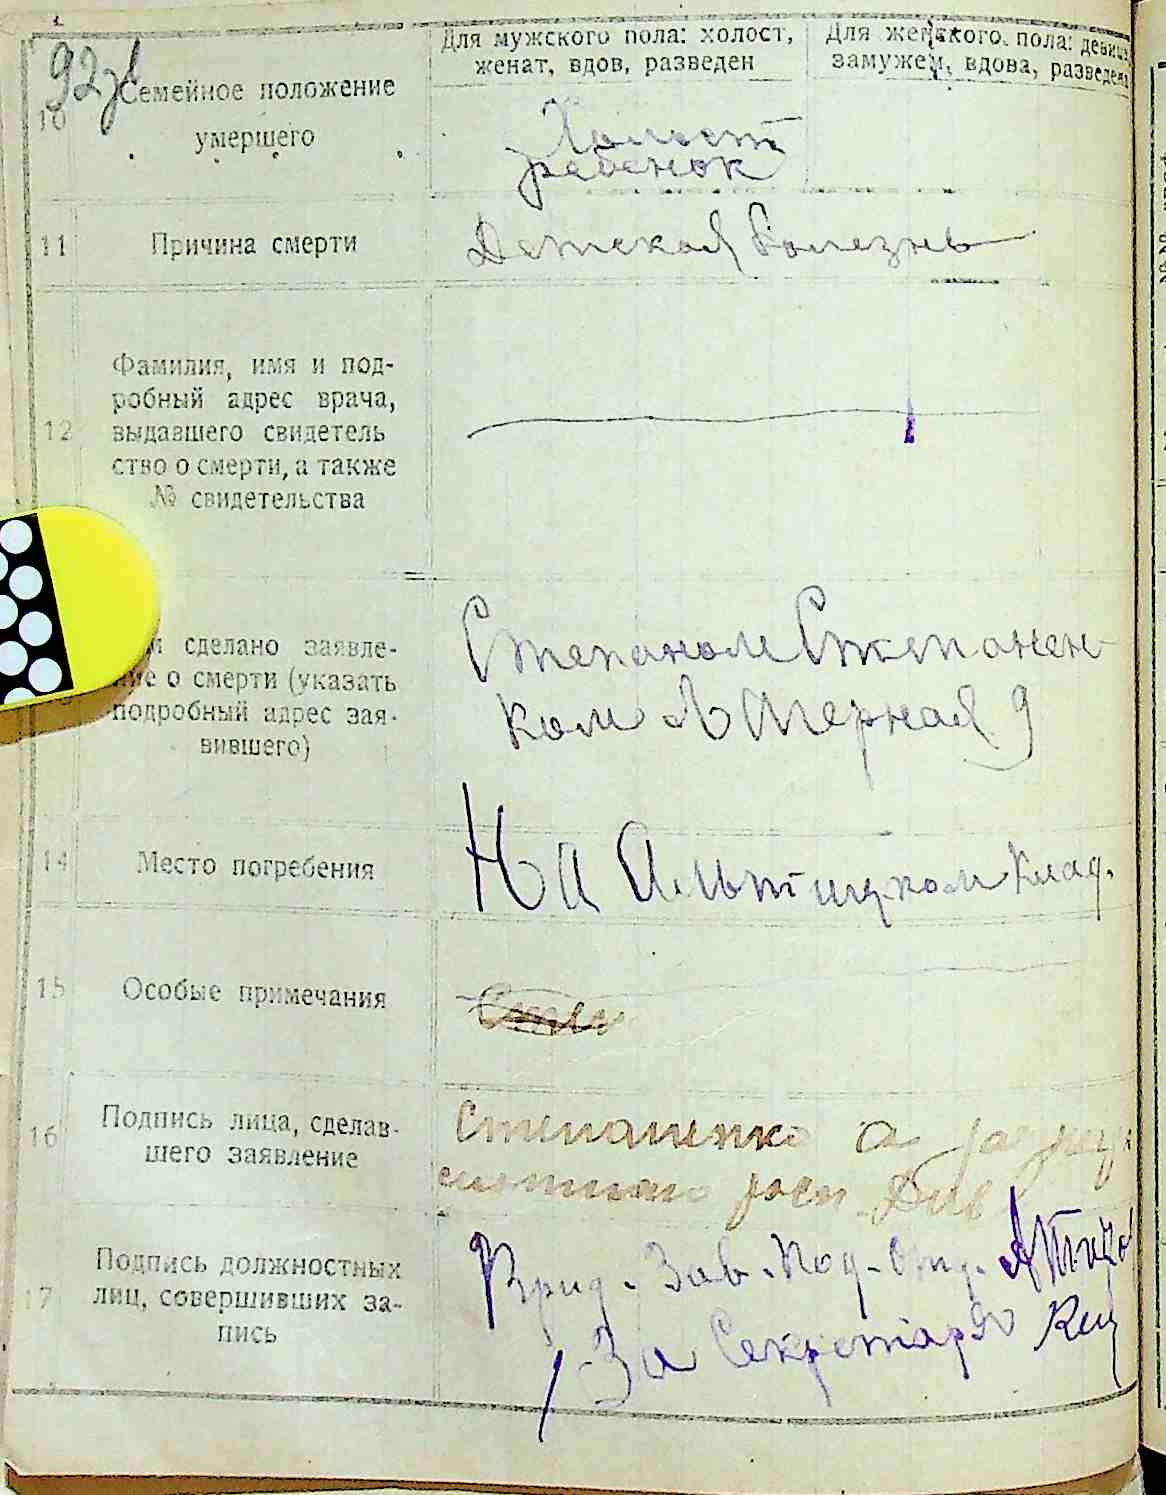 92
Для мужского пола: холост,
женат, вдов, разведен
Для женского пола: девица,
замужем, вдова, разведена
10
Семейное положение
умершего
Холост
ребенок
11
Причина смерти
Детская болезнь
12
Фамилия, имя и под-
робный адрес врача,
выдавшего свидетель
ство о смерти, а также
№ свидетельства
сделано заявле-
ние о смерти (указать
подробный адрес зая-
вившего)
Степаном Степанен-
ком Питерная 9
14
Место погребения
На клад.
15
Особые примечания
16
Подпись лица, сделав-
шего заявление
Степаненко а
17
Подпись должностных
лиц, совершивших за-
пись
Врид. Зав. Под. Отд.
За Секретаря